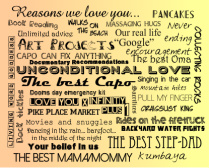 Reasons we love you... PANCAKES
Book Reading WALKS ON THE BEACH MASSAGING HUGS Never
Unlimited advice Our real life ending
ART PROJECTS "Google" encouragement
CAPO CAN FIX ANYTHING The best Oma
Documentary Recommendations
UNCONDITIONAL LOVE
The best Capo Singing in the car
Dooms day emergency kit mountain hikes
LOVE YOU INFINITY PULL MY FINGER
PIKE PLACE MARKET PLUS
Movies and snuggles Rides on the firetruck
Dancing in the rain... barefoot... BACKYARD WATER FIGHTS
in the middle of the night THE BEST STEP-DAD
Your belief in us
THE BEST MAMAMOMMY kumbaya
COLLECTING ROCKS
Back tickles